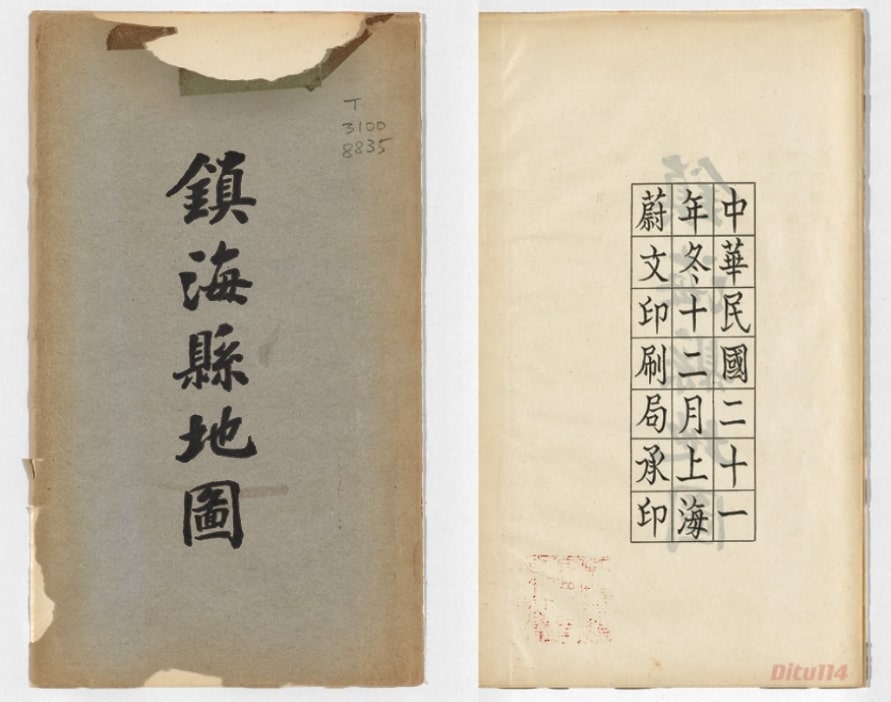 T
3100
8835
鎮海縣地圖
中華民國二十一
年冬十二月上海
蔚文印刷局承印
Ditu114